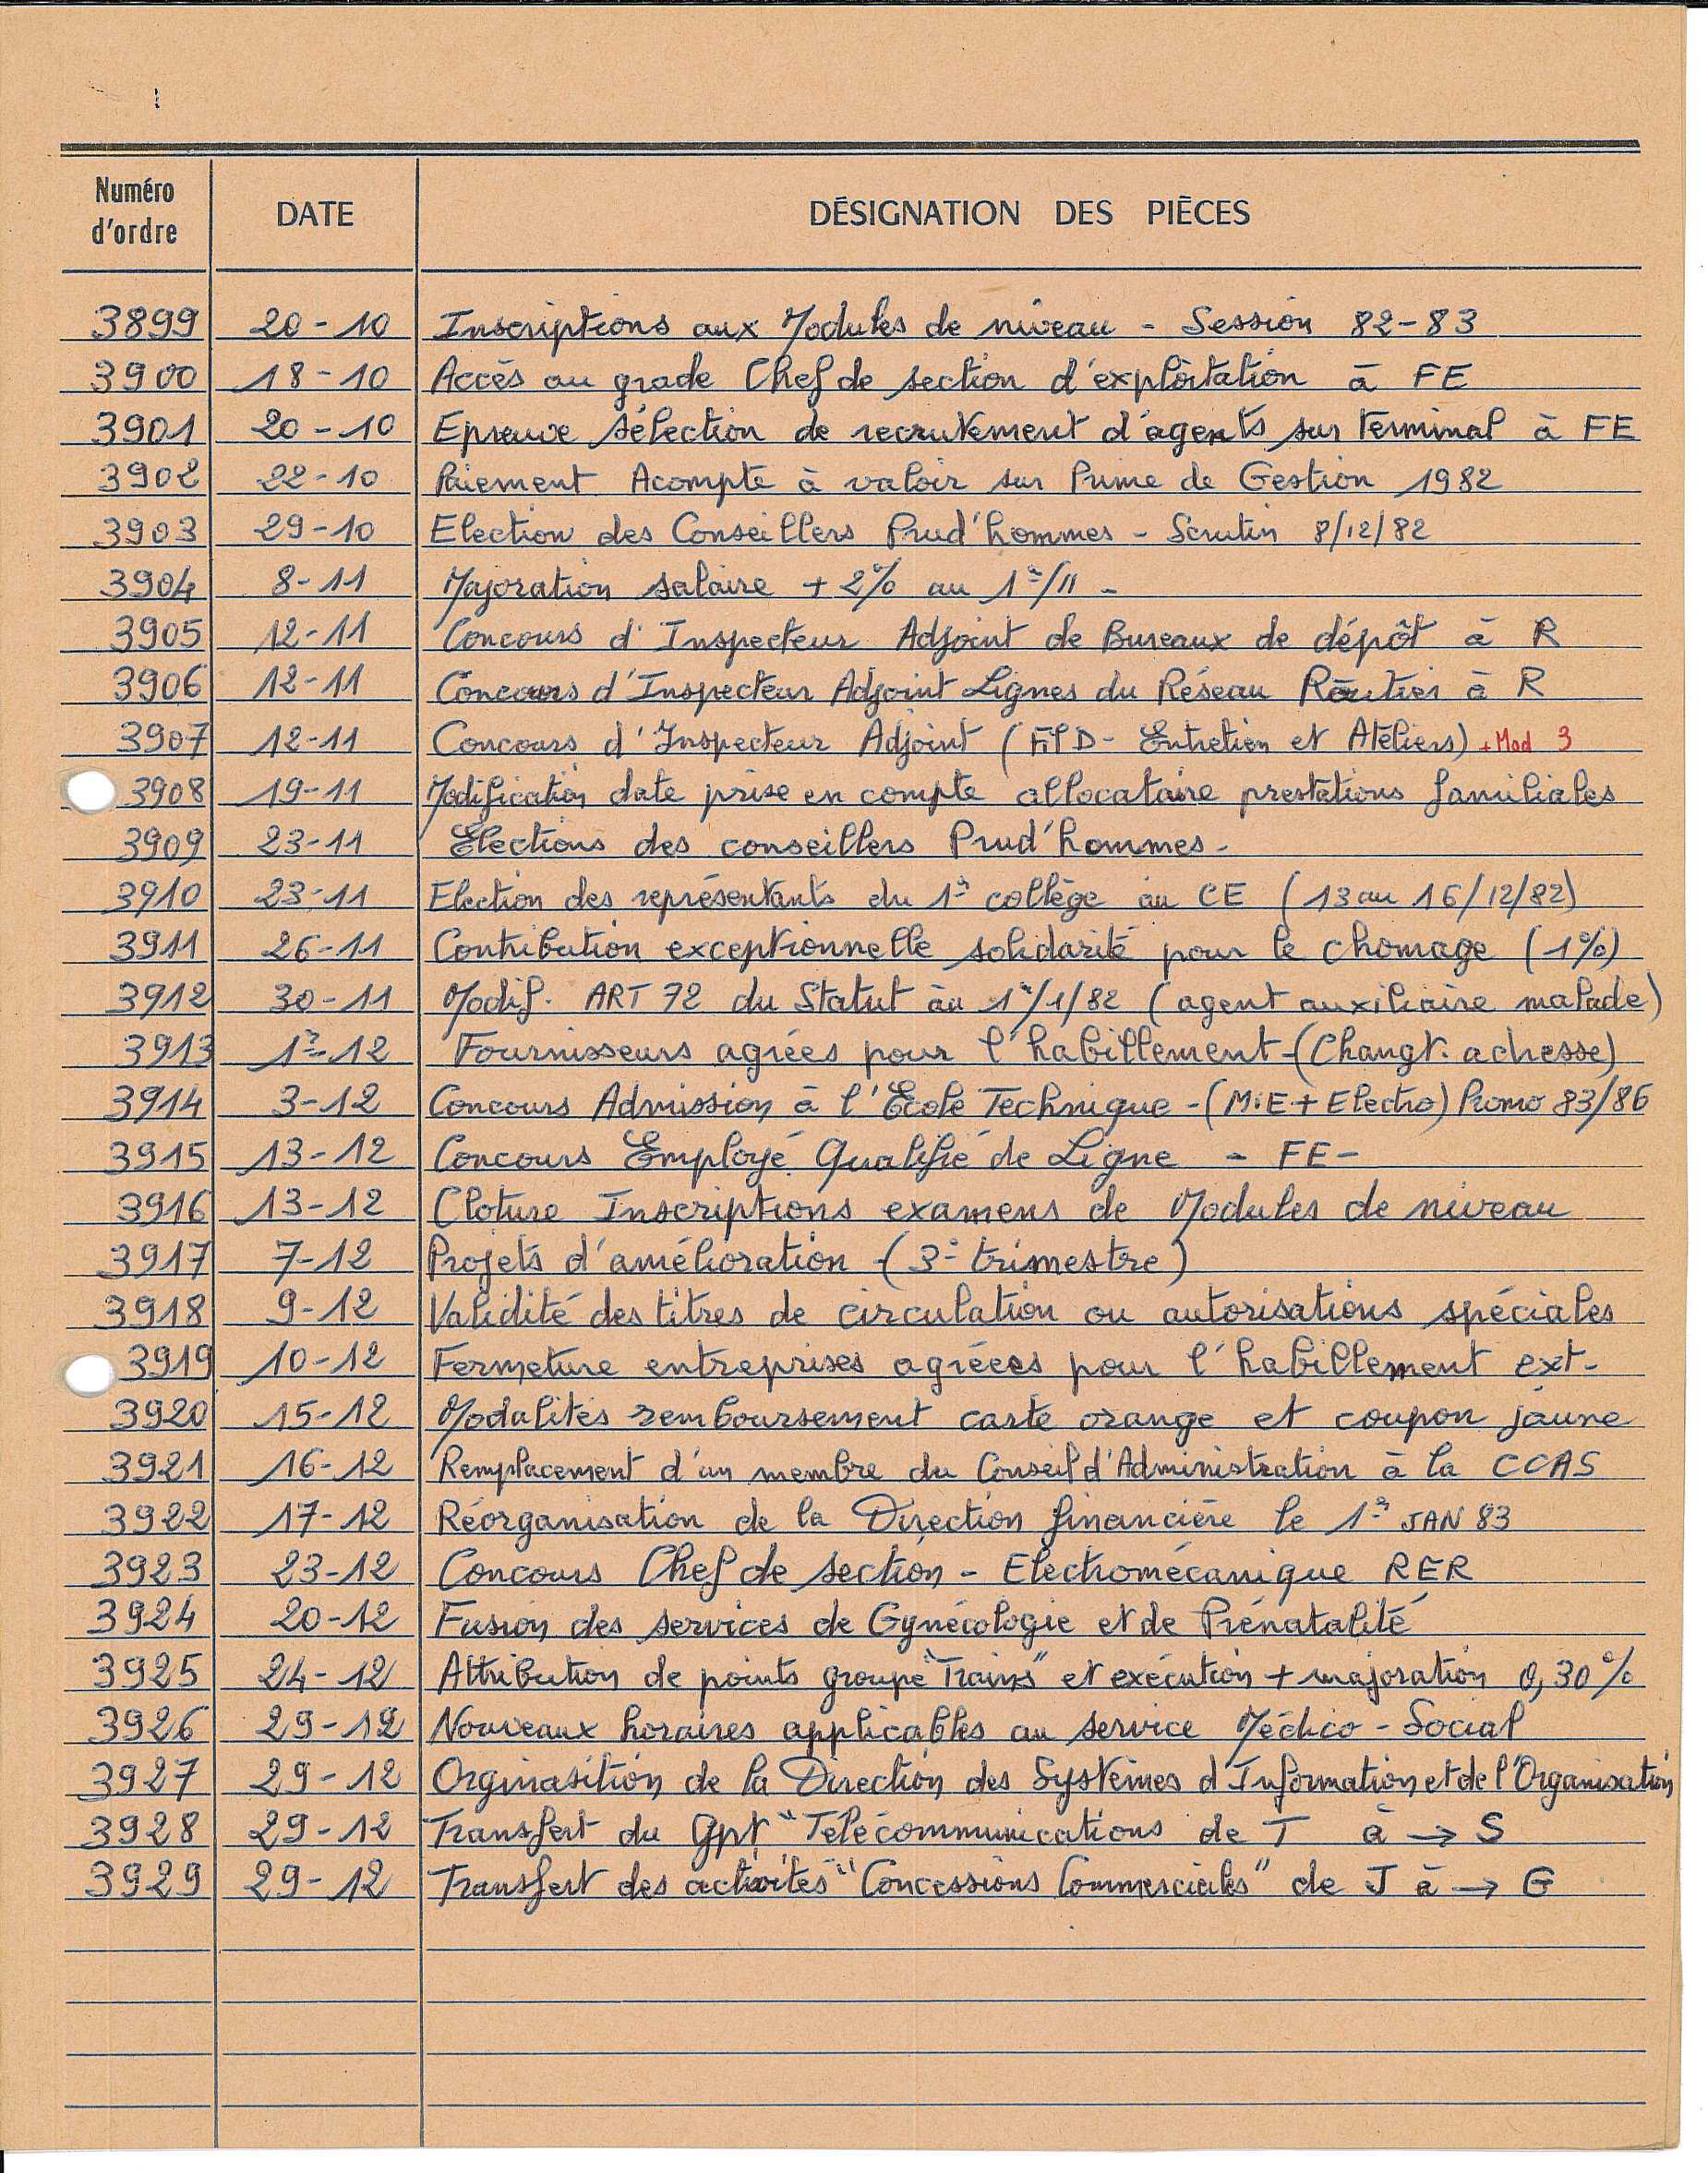 Numéro d'ordre DATE DÉSIGNATION DES PIÈCES
3899 20-10 Inscriptions aux Modules de niveau - Session 82-83
3900 18-10 Accès au grade Chef de section d'exploitation à FE
3901 20-10 Epreuve sélection de recrutement d'agents sur terminal à FE
3902 22-10 Paiement Acompte à valoir sur Prime de Gestion 1982
3903 29-10 Election des Conseillers Prud'hommes - Scrutin 8/12/82
3904 8-11 Majoration salaire + 2% au 1er/11 -
3905 12-11 Concours d'Inspecteur Adjoint de Bureaux de dépôt à R
3906 12-11 Concours d'Inspecteur Adjoint Lignes du Réseau Routier à R
3907 12-11 Concours d'Inspecteur Adjoint ( - Entretien et Ateliers) + Mod 3
3908 19-11 Modification date prise en compte allocataire prestations familiales
3909 23-11 Elections des conseillers Prud'hommes -
3910 23-11 Election des représentants du 1er collège au CE (13 au 16/12/82)
3911 26-11 Contribution exceptionnelle solidarité pour le chomage (1%)
3912 30-11 Modif. ART 72 du Statut au 1er/1/82 (agent auxiliaire malade)
3913 1er-12 Fournisseurs agréés pour l'habillement - (Changt. adresse)
3914 3-12 Concours Admission à l'Ecole Technique - (M.E + Electro) Promo 83/86
3915 13-12 Concours Employé Qualifié de Ligne - FE -
3916 13-12 Cloture Inscriptions examens de Modules de niveau
3917 7-12 Projets d'amélioration - (3e trimestre)
3918 9-12 Validité des titres de circulation ou autorisations spéciales
3919 10-12 Fermeture entreprises agréées pour l'habillement ext-
3920 15-12 Modalités remboursement carte orange et coupon jaune
3921 16-12 Remplacement d'un membre du Conseil d'Administration à la CCAS
3922 17-12 Réorganisation de la Direction financière le 1er JAN 83
3923 23-12 Concours Chef de section - Electromécanique RER
3924 20-12 Fusion des services de Gynécologie et de Prénatalité
3925 24-12 Attribution de points groupe "Trains" et exécution + majoration 0,30%
3926 29-12 Nouveaux horaires applicables au service Médico - Social
3927 29-12 Orginasition de la Direction des Systèmes d'Information et de l'Organisation
3928 29-12 Transfert du Gpt "Télécommunications de T à → S
3929 29-12 Transfert des activités "Concessions Commerciales" de J à → G